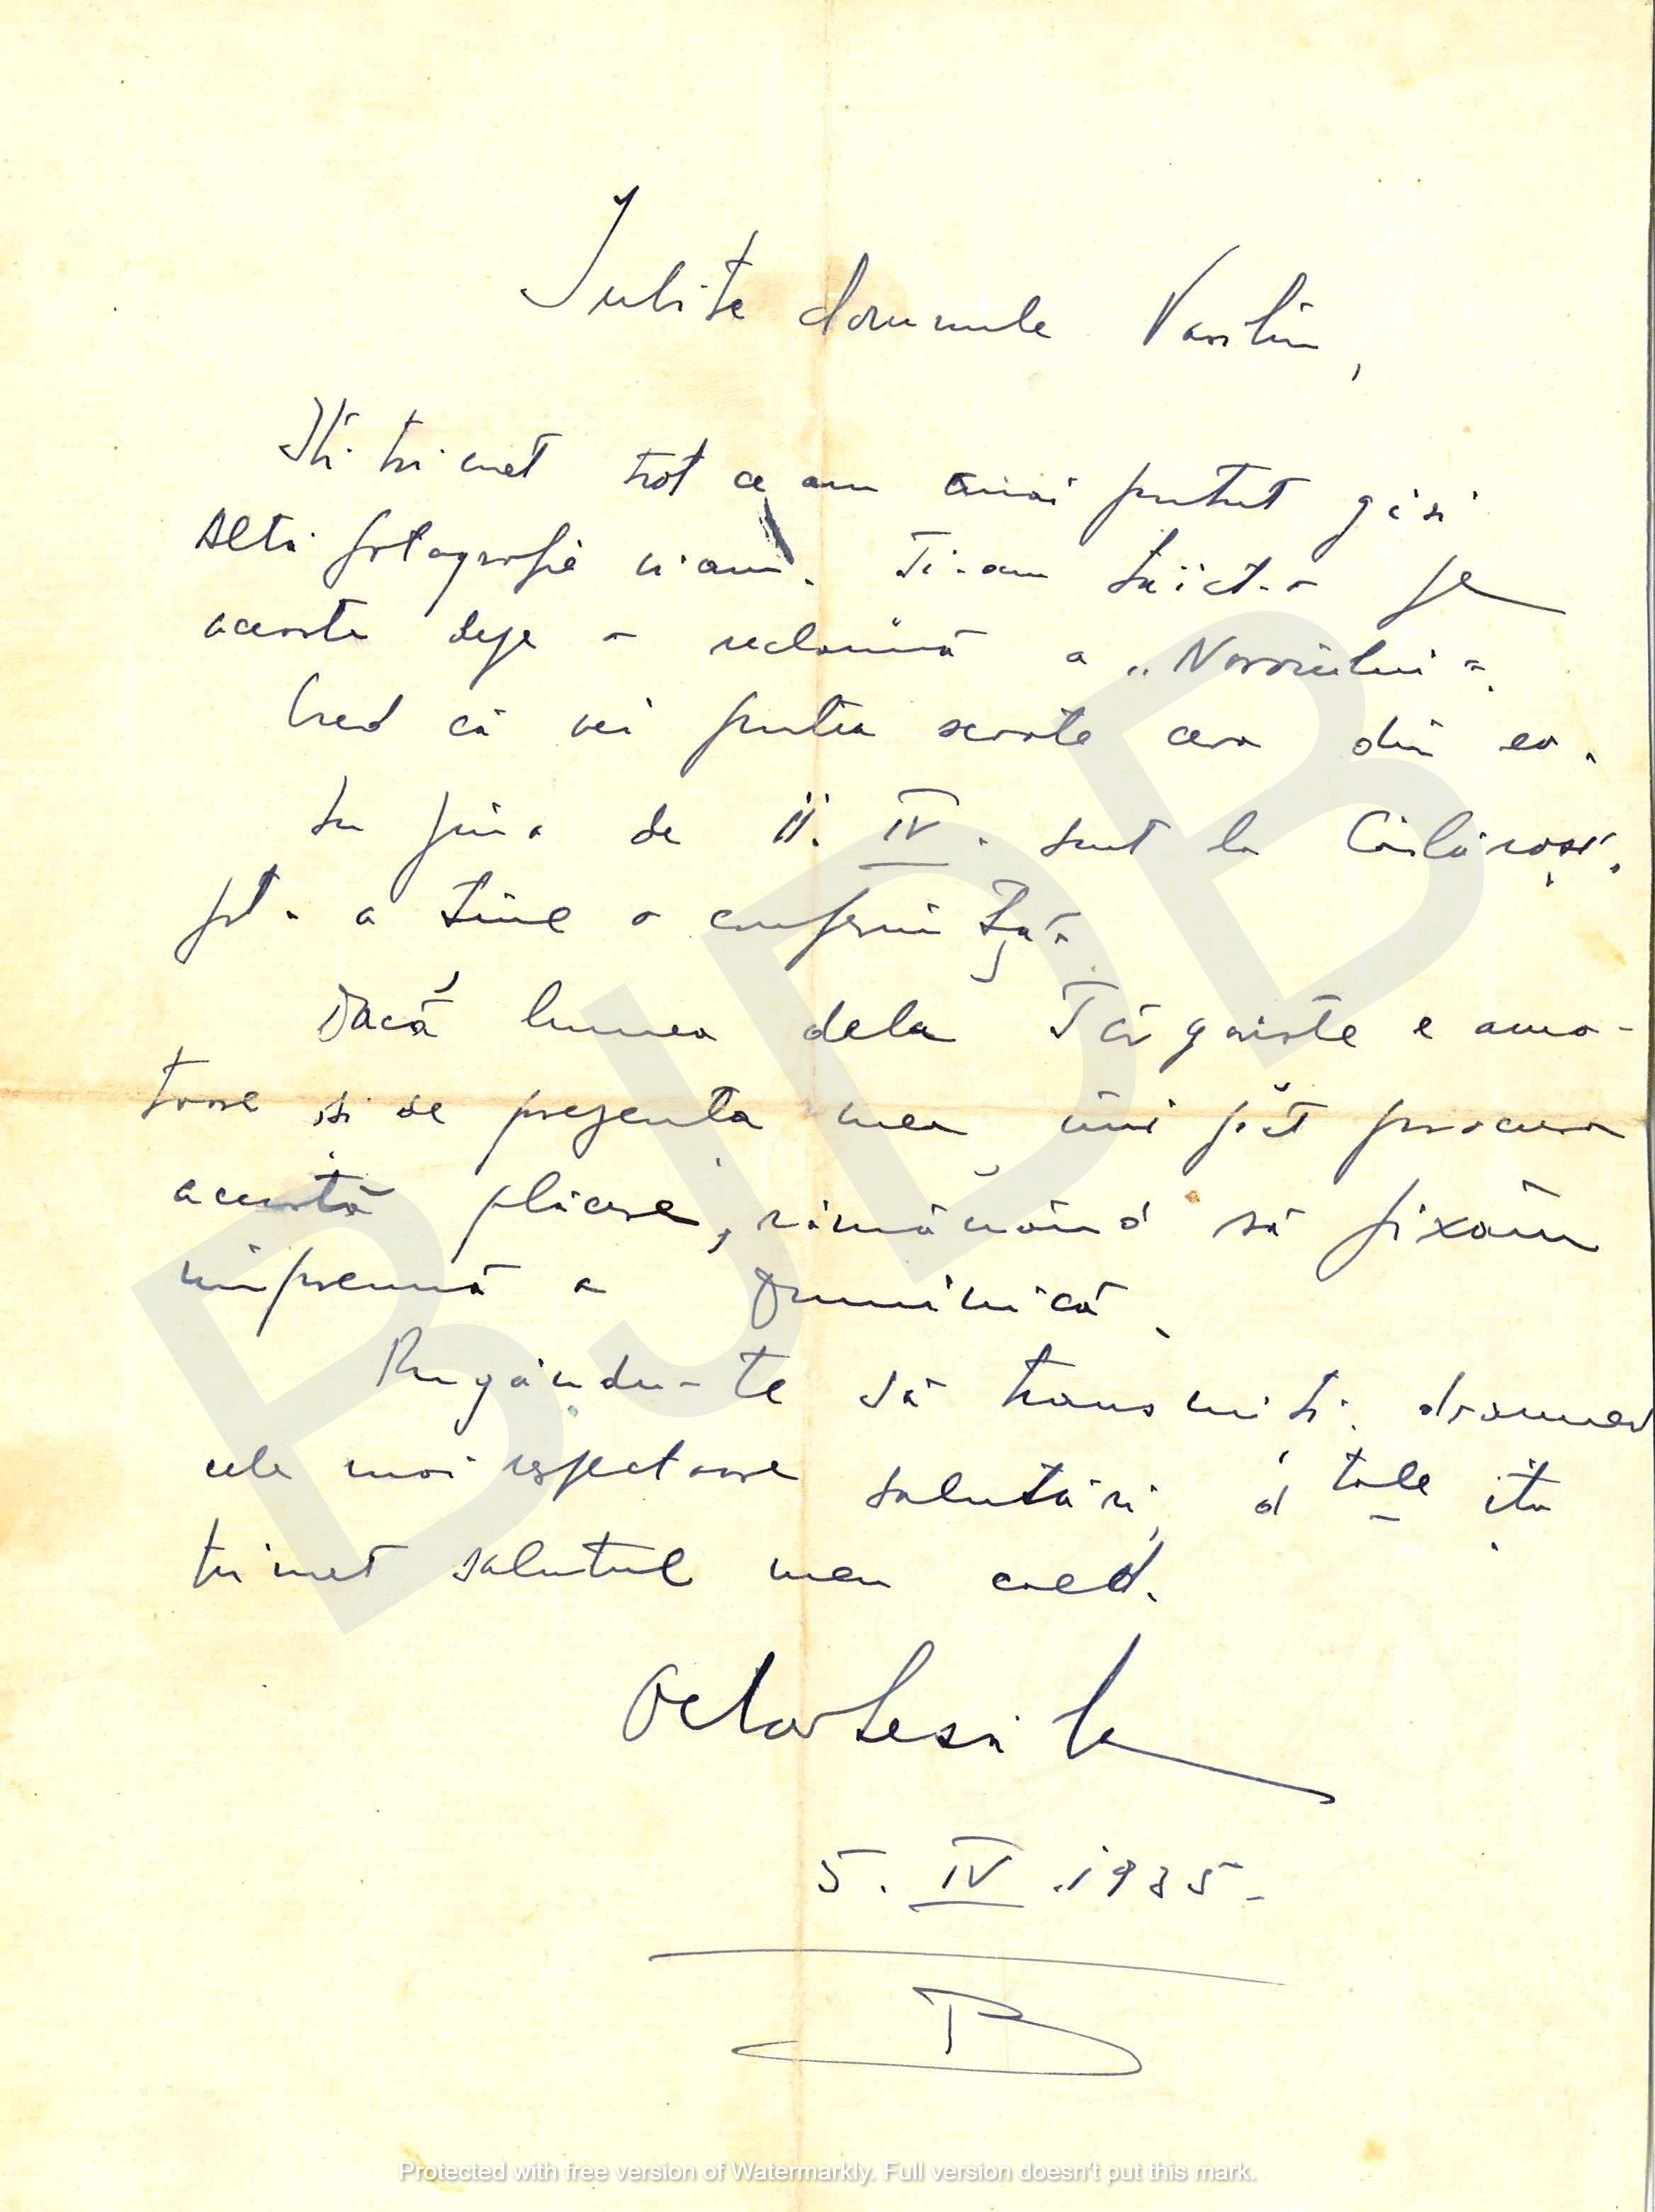 Iubite domnule Vasiliu,
Iți trimet tot ce am mai putut găsi
Altă fotografie n'am. Ți-am tăiet-o pe
aceasta depe o reclamă a „Norocului".
Cred că vei putea scoate ceva din ea.
In jiua de 11. IV. sunt la Călărași,
pt. a tine o conferință.
Dacă lumea dela Târgoviște e ama-
toare și de prezența mea, îmi pot procura
această plăcere, rămânând să fixăm
împreună a Duminică.
Rugându-te să transmiți doamnei
cele mai respectoase salutări, d tale îți
trimet salutul meu cald.
5. IV. 1935.
B
BJDB
Protected with free version of Watermarkly. Full version doesn't put this mark.